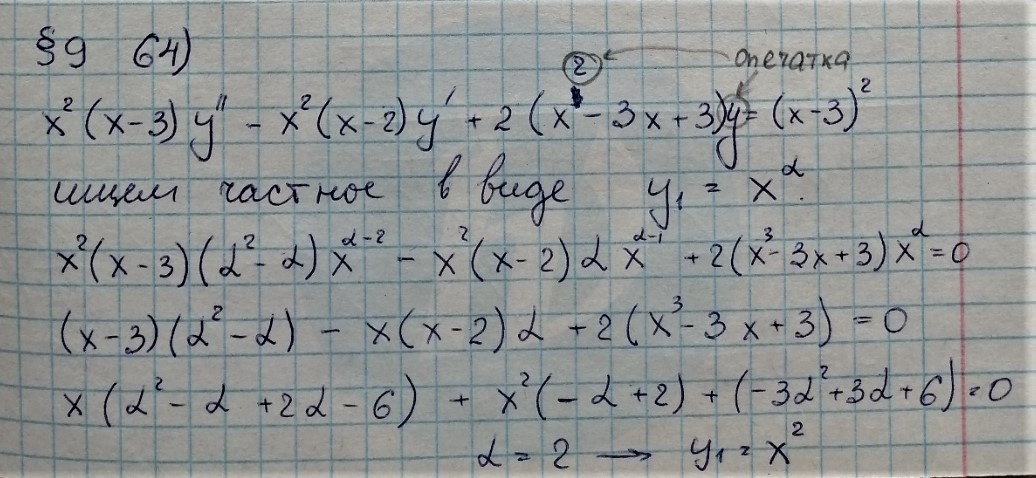 §9 64)
② опечатка
x²(x-3)y'' - x²(x-2)y' + 2(x² - 3x+3)y = (x-3)²
ищем частное в виде y₁ = x^α.
x²(x-3)(α²-α)x^(α-2) - x²(x-2)αx^(α-1) + 2(x³-3x+3)x^α = 0
(x-3)(α²-α) - x(x-2)α + 2(x³-3x+3) = 0
x(α²-α+2α-6) + x²(-α+2) + (-3α²+3α+6) = 0
α = 2 → y₁ = x²